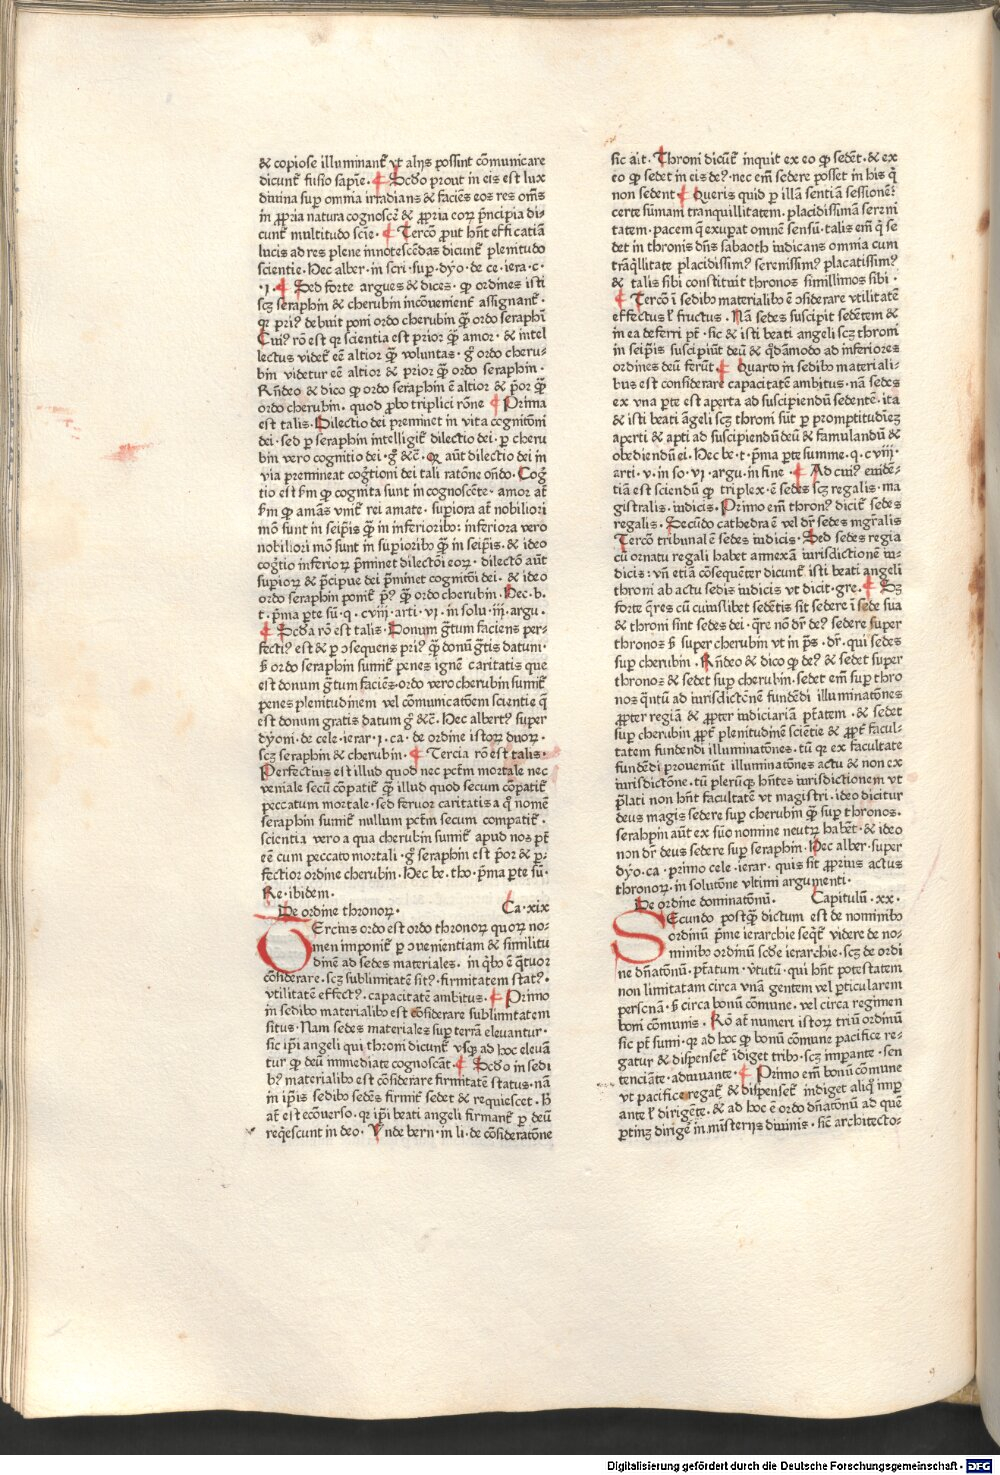 & copiose illuminant᷑ vt alijs possint cōmunicare
dicunt᷑ fusio sapīe. ¶ Scđo prout in eis est lux
diuina suꝑ omnia irradians & faciēs eos res om̄s
in ꝓpria natura cognoscē & ꝓpria eoꝝ pͥncipia di-
cunt᷑ multitudo scīe. ¶ Tercō ꝓut hn̄t efficatiā
lucis ad res plene innotescēdas dicunt᷑ plenitudo
scientie. Hec alber. in scri. suꝑ. dyo. de ce. iera. c.
.i. ¶ Sed forte argues & dices. ꝙ ordines isti
scꝫ seraphin & cherubin incōuenient᷑ assignant᷑.
qꝛ priꝰ debuit poni ordo cherubin q̄ꝫ ordo seraphī
Cuiꝰ rō est qꝛ scientia est prior q̄ꝫ amor. & intel
lectus videt᷑ eē altior q̄ꝫ voluntas. gͦ ordo cheru-
bin videtur eē altior & prior q̄ꝫ ordo seraphin.
Rn̄deo & dico ꝙ ordo seraphin ē altior & pͥor q̄ꝫ
ordo cherubin. quod ꝓbo triplici rōne ¶ Prima
est talis. Dilectio dei preminet in vita cognitōni
dei. sed ꝑ seraphin intelligit᷑ dilectio dei. ꝑ cheru
bin vero cognitio dei. gͦ &c̄. Qꝙ aūt dilectio dei in
via premineat cogͥtioni dei tali ratōne on̄do. Cogͥ
tio est fm̄ ꝙ cognita sunt in cognoscēte. amor at̄
fm̄ ꝙ amās vnit᷑ rei amate. suꝑiora at̄ nobiliori
mō sunt in seiꝑis q̄ꝫ in inferioribꝰ: inferiora vero
nobiliori mō sunt in suꝑioribꝰ q̄ꝫ in seiꝑis. & ideo
cogͥtio inferioꝝ pͥminet dilectōi eoꝝ. dilectō aūt
suꝑioꝝ & pͥcipue dei pͥminet cognitōi dei. & ideo
ordo seraphin ponit᷑ pͥꝰ q̄ꝫ ordo cherubin. Hec. b.
t. pͥma ꝑte sū. q. cviii. arti. vi. in solu. iii. argu.
¶ Scđa rō est talis. Donum gͣtum faciens per-
fectiꝰ est & ꝑ ɔsequens priꝰ qꝙ donū gͣtis datum.
sꝫ ordo seraphin sumit᷑ penes ignē caritatis que
est donum gͣtum faciēs. ordo vero cherubin sumit᷑
penes plenitudinem vel cōmunicatōem scientie q̄
est donum gratis datum gͦ &c̄. Hec albertꝰ super
dyoni. de cele. ierar. i. ca. de ordine istoꝝ duoꝝ.
scꝫ seraphin & cherubin. ¶ Tercia rō est talis.
Perfectius est illud quod nec pctm̄ mortale nec
veniale secū cōpatit᷑ q̄ꝫ illud quod secum cōpatit᷑
peccatum mortale. sed feruor caritatis a qͦ nomē
seraphin sumit᷑ nullum pctm̄ secum compatit᷑.
scientia vero a qua cherubin sumit᷑ apud nos pt̄
eē cum peccato mortali. gͦ seraphin est pͥor & ꝑ-
fectior ordine cherubin. Hec be. tho. pͥma ꝑte sū.
Re. ibidem.
De ordine thronoꝝ. Ca. xix
TErcius ordo est ordo thronoꝝ quoꝝ no-
men imponit᷑ ꝑ ɔuenientiam & similitu
dinē ad sedes materiales. in qͥbꝰ ē qͣtuor
cōsiderare. scꝫ sublimitatē sitꝰ. firmitatem statꝰ.
vtilitatē effectꝰ. capacitatē ambitus. ¶ Primo
in sedibꝰ materialibꝰ est cōsiderare sublimitatem
situs. Nam sedes materiales suꝑ terrā eleuantur.
sic ip̄i angeli qui throni dicunt᷑ vsqꝫ ad hoc eleuā
tur ꝙ deū immediate cognoscāt ¶ Scđo in sedi
bꝰ materialibꝰ est cōsiderare firmitatē status. nā
in ip̄is sedibꝰ sedēs firmit᷑ sedet & requiescet. Hͨ
at̄ est ecōuerso. qꝛ ip̄i beati angeli firmant᷑ ꝑ deū
reqͥescunt in deo. Vnde bern. in li. de cōsideratōne
sic ait. Throni dicūt᷑ inquit ex eo ꝙ sedēt. & ex
eo ꝙ sedet in eis deꝰ. nec em̄ sedere posset in his q̄
non sedent ¶ Queris quid ꝑ illā sentiā sessionē?
certe sūmam tranquillitatem. placidissimā sereni
tatem. pacem q̄ exuꝑat omnē sensū. talis em̄ q̄ se
det in thronis dn̄s sabaoth iudicans omnia cum
trāqͥllitate placidissimꝰ serenissimꝰ placatissimꝰ
& talis sibi constituit thronos simillimos sibi.
¶ Tercō ī sedibꝰ materialibꝰ ē ɔsiderare vtilitatē
effectus ł fructus. Nā sedes suscipit sedētem &
in ea deferri pt̄. sic & isti beati angeli scꝫ throni
in seiꝑis suscipiūt deū & qͦdāmodo ad inferiores
ordines deū ferūt. ¶ Quarto in sedibꝰ materiali-
bus est considerare capacitatē ambitus. nā sedes
ex vna ꝑte est aperta ad suscipiendū sedentē. ita
& isti beati āgeli scꝫ throni sūt ꝑ promptitudīeꝫ
aperti & apti ad suscipiendū deū & famulandū &
obediendū ei. Hec be. t. pͥma ꝑte summe. q. cviii.
arti. v. in so. vi. argu. in fine. ¶ Ad cuiꝰ euidē-
tiā est sciendū ꝙ triplex. ē sedes scꝫ regalis. ma
gistralis. iudicis. Primo em̄ thronꝰ dicit᷑ sedes
regalis. Secūdo cathedra ē vel dr̄ sedes mgr̄alis
Tercō tribunal ē sedes iudicis. Sed sedes regia
cū ornatu regali habet annexā iurisdictionē iu-
dicis. vn̄ etiā cōsequēter dicunt᷑ isti beati angeli
throni ab actu sedis iudicis vt dicit. gre. ¶ Sꝫ
forte q̄res cū cuiuslibet sedētis sit sedere ī sede sua
& throni sint sedes dei. q̄re nō dr̄ deꝰ sedere super
thronos sꝫ super cherubin vt in pͣs. dr̄. qui sedes
suꝑ cherubin. Rn̄deo & dico ꝙ deꝰ & sedet super
thronos & sedet suꝑ cherubin. sedet em̄ suꝑ thro
nos qͣntū ad iurisdictōem fundēdi illuminatōnes
ꝓpter regiā & ꝓpter iudiciariā pt̄atem. & sedet
suꝑ cherubin ꝓpt᷑ plenitudinē scientie & ꝓpt᷑ facul-
tatem fundendi illuminatōnes. tū qꝛ ex facultate
fundēdi proueniūt illuminatōnes actu & non ex
iurisdictōne. tū plerūqꝫ hn̄tes iurisdictionem vt
pͥlati non hn̄t facultatē vt magistri. ideo dicitur
deus magis sedere suꝑ cherubin q̄ꝫ suꝑ thronos.
serahpin aūt ex suo nomine neutrꝫ habēt. & ideo
non dr̄ deus sedere suꝑ seraphin. Hec alber. super
dyo. ca. primo cele. ierar. quis sit ꝓprius actus
thronoꝝ. in solutōne vltimi argumenti.
De ordine dominatōnū. Capitulū. xx.
SEcundo postqͣꝫ dictum est de nominibꝰ
ordinū pͥme ierarchie seqͥt᷑ videre de no-
minibꝰ ordinū scđe ierarchie. scꝫ de ordi
ne dn̄atōnū. pt̄atum. vͥtutū. qui hn̄t potestatem
non limitatam circa vnā gentem vel ꝑticularem
personā. sꝫ circa bonū cōmune. vel circa regimen
boni cōmunis. Rō at̄ numeri istoꝝ triū ordinū
sic pt̄ sumi. qꝛ ad hoc ꝙ bonū cōmune pacifice re-
gatur & dispenset᷑ īdiget tribꝰ. scꝫ imꝑante. sen
tenciāte. adiuuante. ¶ Primo em̄ bonū cōmune
vt pacifice regat᷑ & dispenset᷑ indiget aliqͦ imꝑ
ante ł dirigēte. & ad hoc ē ordo dn̄atōnū ad quē
ꝑtinꝫ dirigē in misterijs diuinis. sic̄ architecto-
Digitalisierung gefördert durch die Deutsche Forschungsgemeinschaft - DFG